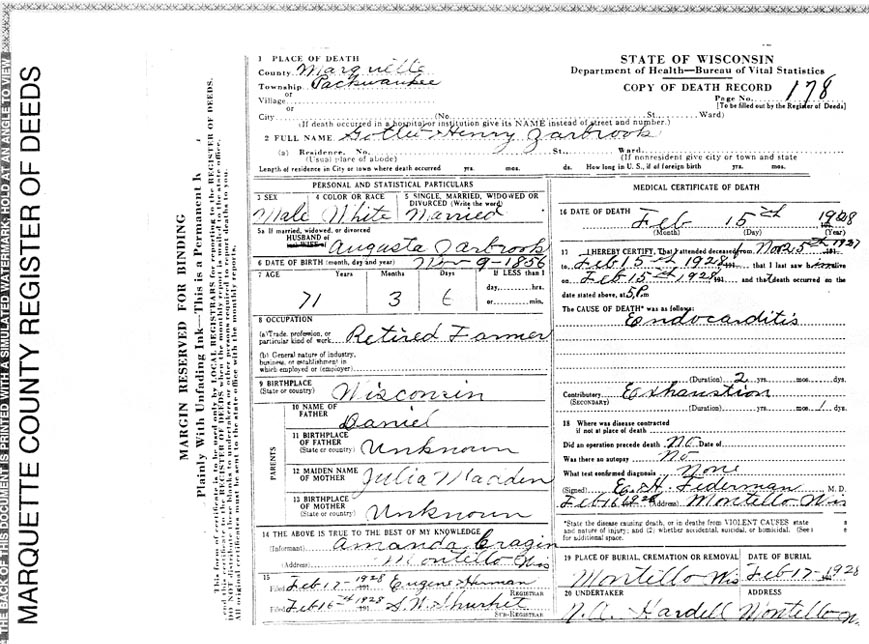 THE BACK OF THIS DOCUMENT IS PRINTED WITH A SIMULATED WATERMARK. HOLD AT AN ANGLE TO VIEW
MARQUETTE COUNTY REGISTER OF DEEDS
MARGIN RESERVED FOR BINDING
Plainly With Unfading Ink—This is a Permanent
STATE OF WISCONSIN
Department of Health—Bureau of Vital Statistics
COPY OF DEATH RECORD
Page No. 178
[To be filled out by the Register of Deeds]
1 PLACE OF DEATH
County Marquette
Township Packwaukee
or
Village
or
City (No. St. Ward)
(If death occurred in a hospital or institution give its NAME instead of street and number.)
2 FULL NAME Gotlie Henry Zarbrook
(a) Residence, No. St., Ward.
(Usual place of abode) (If nonresident give city or town and state
Length of residence in City or town where death occurred yrs. mos. ds. How long in U. S., if of foreign birth yrs. mos.
PERSONAL AND STATISTICAL PARTICULARS
3 SEX 4 COLOR OR RACE 5 SINGLE, MARRIED, WIDOWED OR DIVORCED (Write the word)
Male White Married
5a If married, widowed, or divorced
HUSBAND of
Augusta Zarbrook
6 DATE OF BIRTH (month, day and year) Nov 9-1856
7 AGE Years Months Days If LESS than 1
day, hrs.
71 3 6 or min.
8 OCCUPATION
(a) Trade, profession, or
particular kind of work Retired Farmer
(b) General nature of industry,
business, or establishment in
which employed or (employer)
9 BIRTHPLACE
(State or country) Wisconsin
PARENTS
10 NAME OF
FATHER Daniel
11 BIRTHPLACE
OF FATHER
(State or country) Unknown
12 MAIDEN NAME
OF MOTHER Julia
13 BIRTHPLACE
OF MOTHER
(State or country) Unknown
14 THE ABOVE IS TRUE TO THE BEST OF MY KNOWLEDGE
(Informant) Amanda Cragin
(Address) Montello Wis
15
Filed Feb 17-1928 Eugene Herman
REGISTRAR
Filed Feb 16th 1928 S.W.
SUB-REGISTRAR
MEDICAL CERTIFICATE OF DEATH
16 DATE OF DEATH
Feb 15th 1928
(Month) (Day)
17 I HEREBY CERTIFY, That I attended deceased from Nov 25th 1927
to Feb 15th 1928, that I last saw him alive
on Feb 15th 1928, and that death occurred on the
date stated above, at 5 P.m.
The CAUSE OF DEATH* was as follows:
Endocarditis
(Duration) 2 yrs. mos. dys.
Contributory Exhaustion
(SECONDARY)
(Duration) yrs. mos. 1 dys.
18 Where was disease contracted
if not at place of death
Did an operation precede death No Date of
Was there an autopsy No
What test confirmed diagnosis None
(Signed) E. H. Federman M. D.
Feb 16 1928 (Address) Montello Wis
*State the disease causing death, or in deaths from VIOLENT CAUSES state
and nature of injury; and (2) whether accidental, suicidal, or homicidal. (See
for additional space.
19 PLACE OF BURIAL, CREMATION OR REMOVAL DATE OF BURIAL
Montello Wis Feb 17-1928
20 UNDERTAKER ADDRESS
Hardell Montello